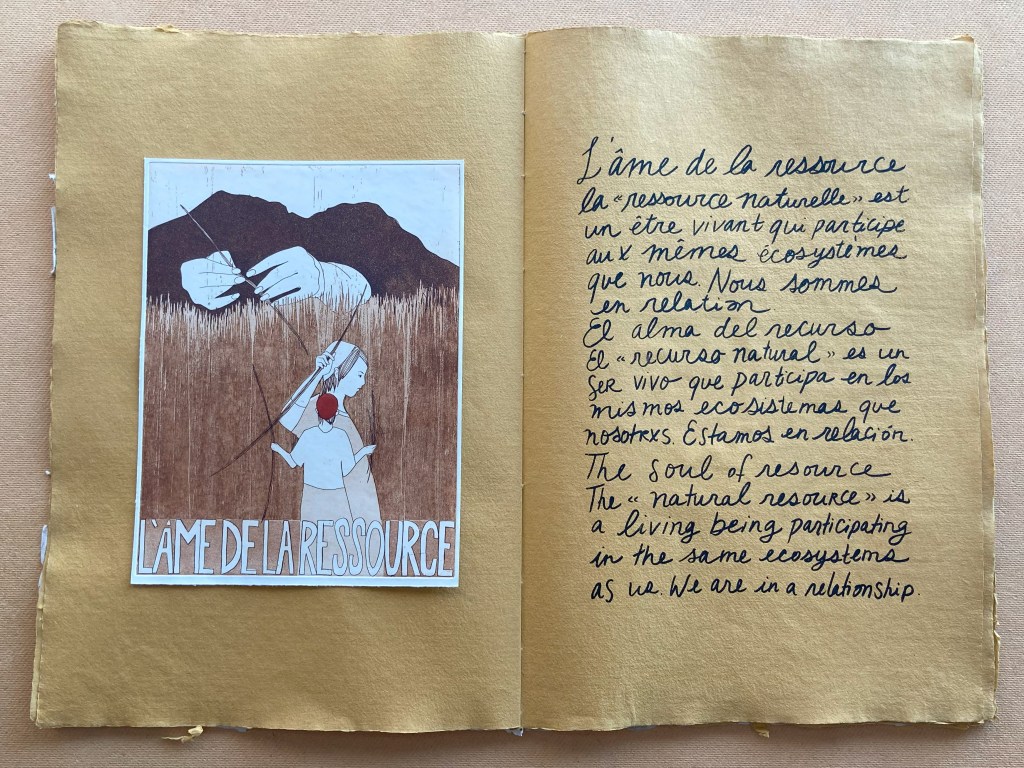 L'ÂME DE LA RESSOURCE
L'âme de la ressource
la «ressource naturelle» est
un être vivant qui participe
aux mêmes écosystèmes
que nous. Nous sommes
en relation
El alma del recurso
El «recurso natural» es un
ser vivo que participa en los
mismos ecosistemas que
nosotrxs. Estamos en relación.
The soul of resource
The «natural resource» is
a living being participating
in the same ecosystems
as us. We are in a relationship.